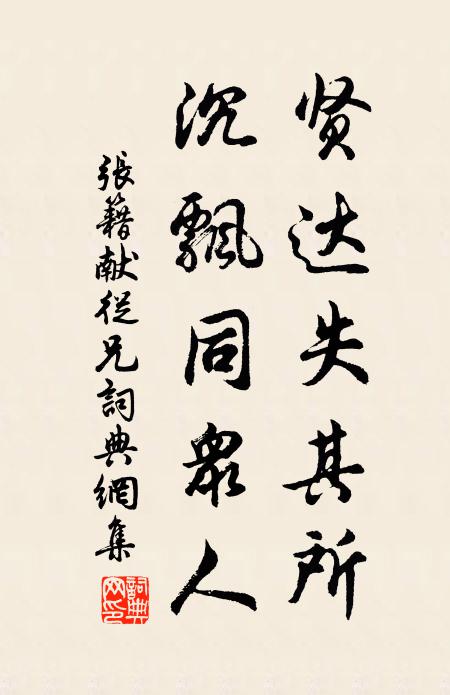 贤达失其所
沉飘同眾人
張籍献從兄詞典網集
詞典網印